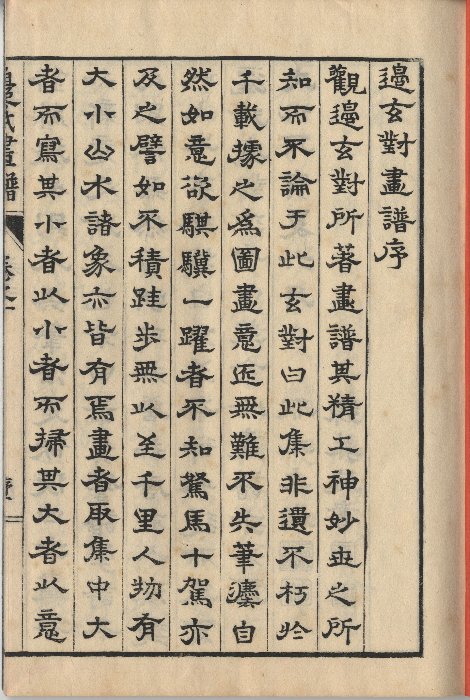 邊玄對畫譜序
觀邊玄對所著畫譜其精工神妙世之所
知而不論于此玄對曰此集非遺不朽於
千載據之爲圖畫意匠無難不失筆癢自
然如意欲騏驥一躍者不知駑馬十駕亦
及之譬如不積跬步無以至千里人物有
大小山水諸象亦皆有焉畫者取集中大
者而寫其小者以小者而掃其大者以意
邊氏畫譜